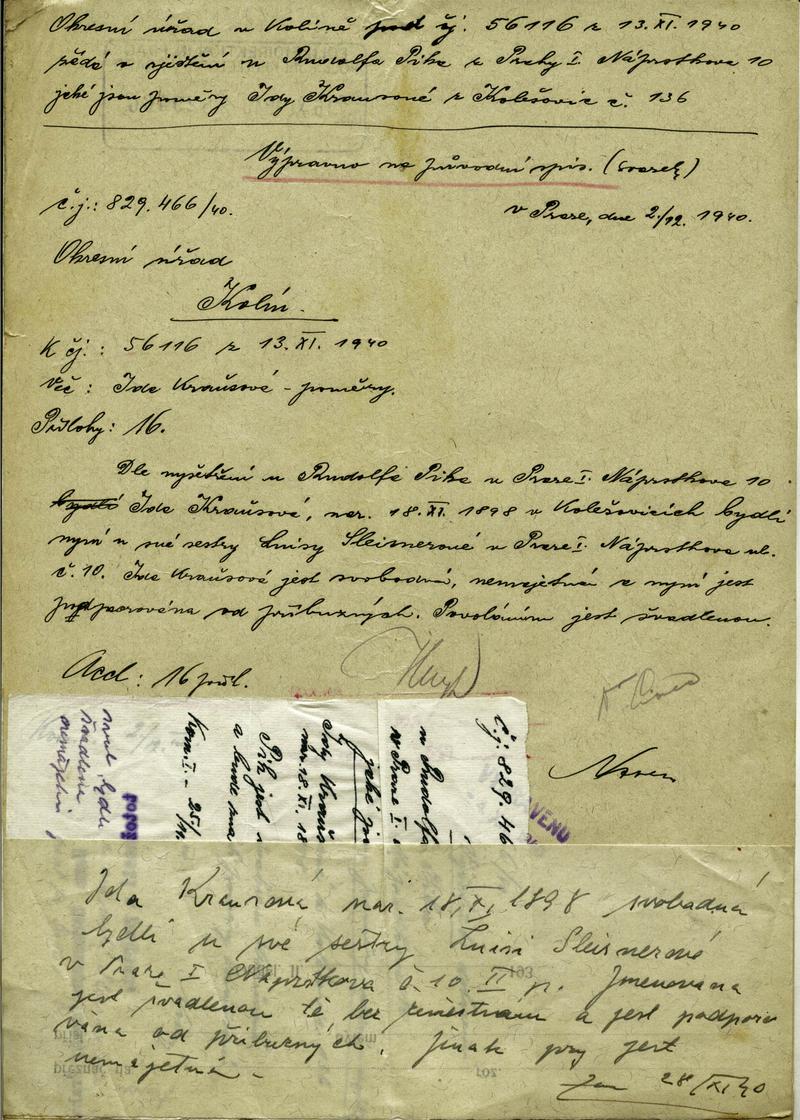 Okresní úřad v Kolíně pod čj. 56116 z 13. XI. 1940
žádá o zjištění u Rudolfa Pika z Prahy I. Náprstkova 10
jaké jsou poměry Idy Krausové z Kolešovic č. 136
Výpravno na průvodní spis. (svazek)
č.j.: 829.466/40.
v Praze, dne 2./12. 1940.
Okresní úřad
Kolín.
K čj.: 56116 z 13. XI. 1940
Věc: Ida Kraušová - poměry.
Přílohy: 16.
Dle vyšetření u Rudolfa Pika v Praze I. Náprstkova 10
bydlí Ida Kraušová, nar. 18. XI. 1898 v Kolešovicích bydlí
nyní u své sestry Luisy Sleisnerové v Praze I. Náprstkova ul.
č. 10. Ida Kraušová jest svobodná, nemajetná a nyní jest
podporována od příbuzných. Povoláním jest švadlenou.
Acd: 16 příl.
č.j. 829.46
u Rudolfa
v Praze I.
jaké js
Idy Krauš
nar. 18. XI. 18
Pik jest
a bude
Kom. I. - 25/
svob. bydlí
švadlena
nemajetná
Ida Krausová nar. 18. XI. 1898 svobodná
bydlí u své sestry Luisi Sleisnerové
v Praze I Náprstkova č. 10. II p. Jmenovaná
jest švadlenou tč bez zaměstnání a jest podporo
vána od příbuzných. Jinak prý jest
nemajetná -
28/XI 40